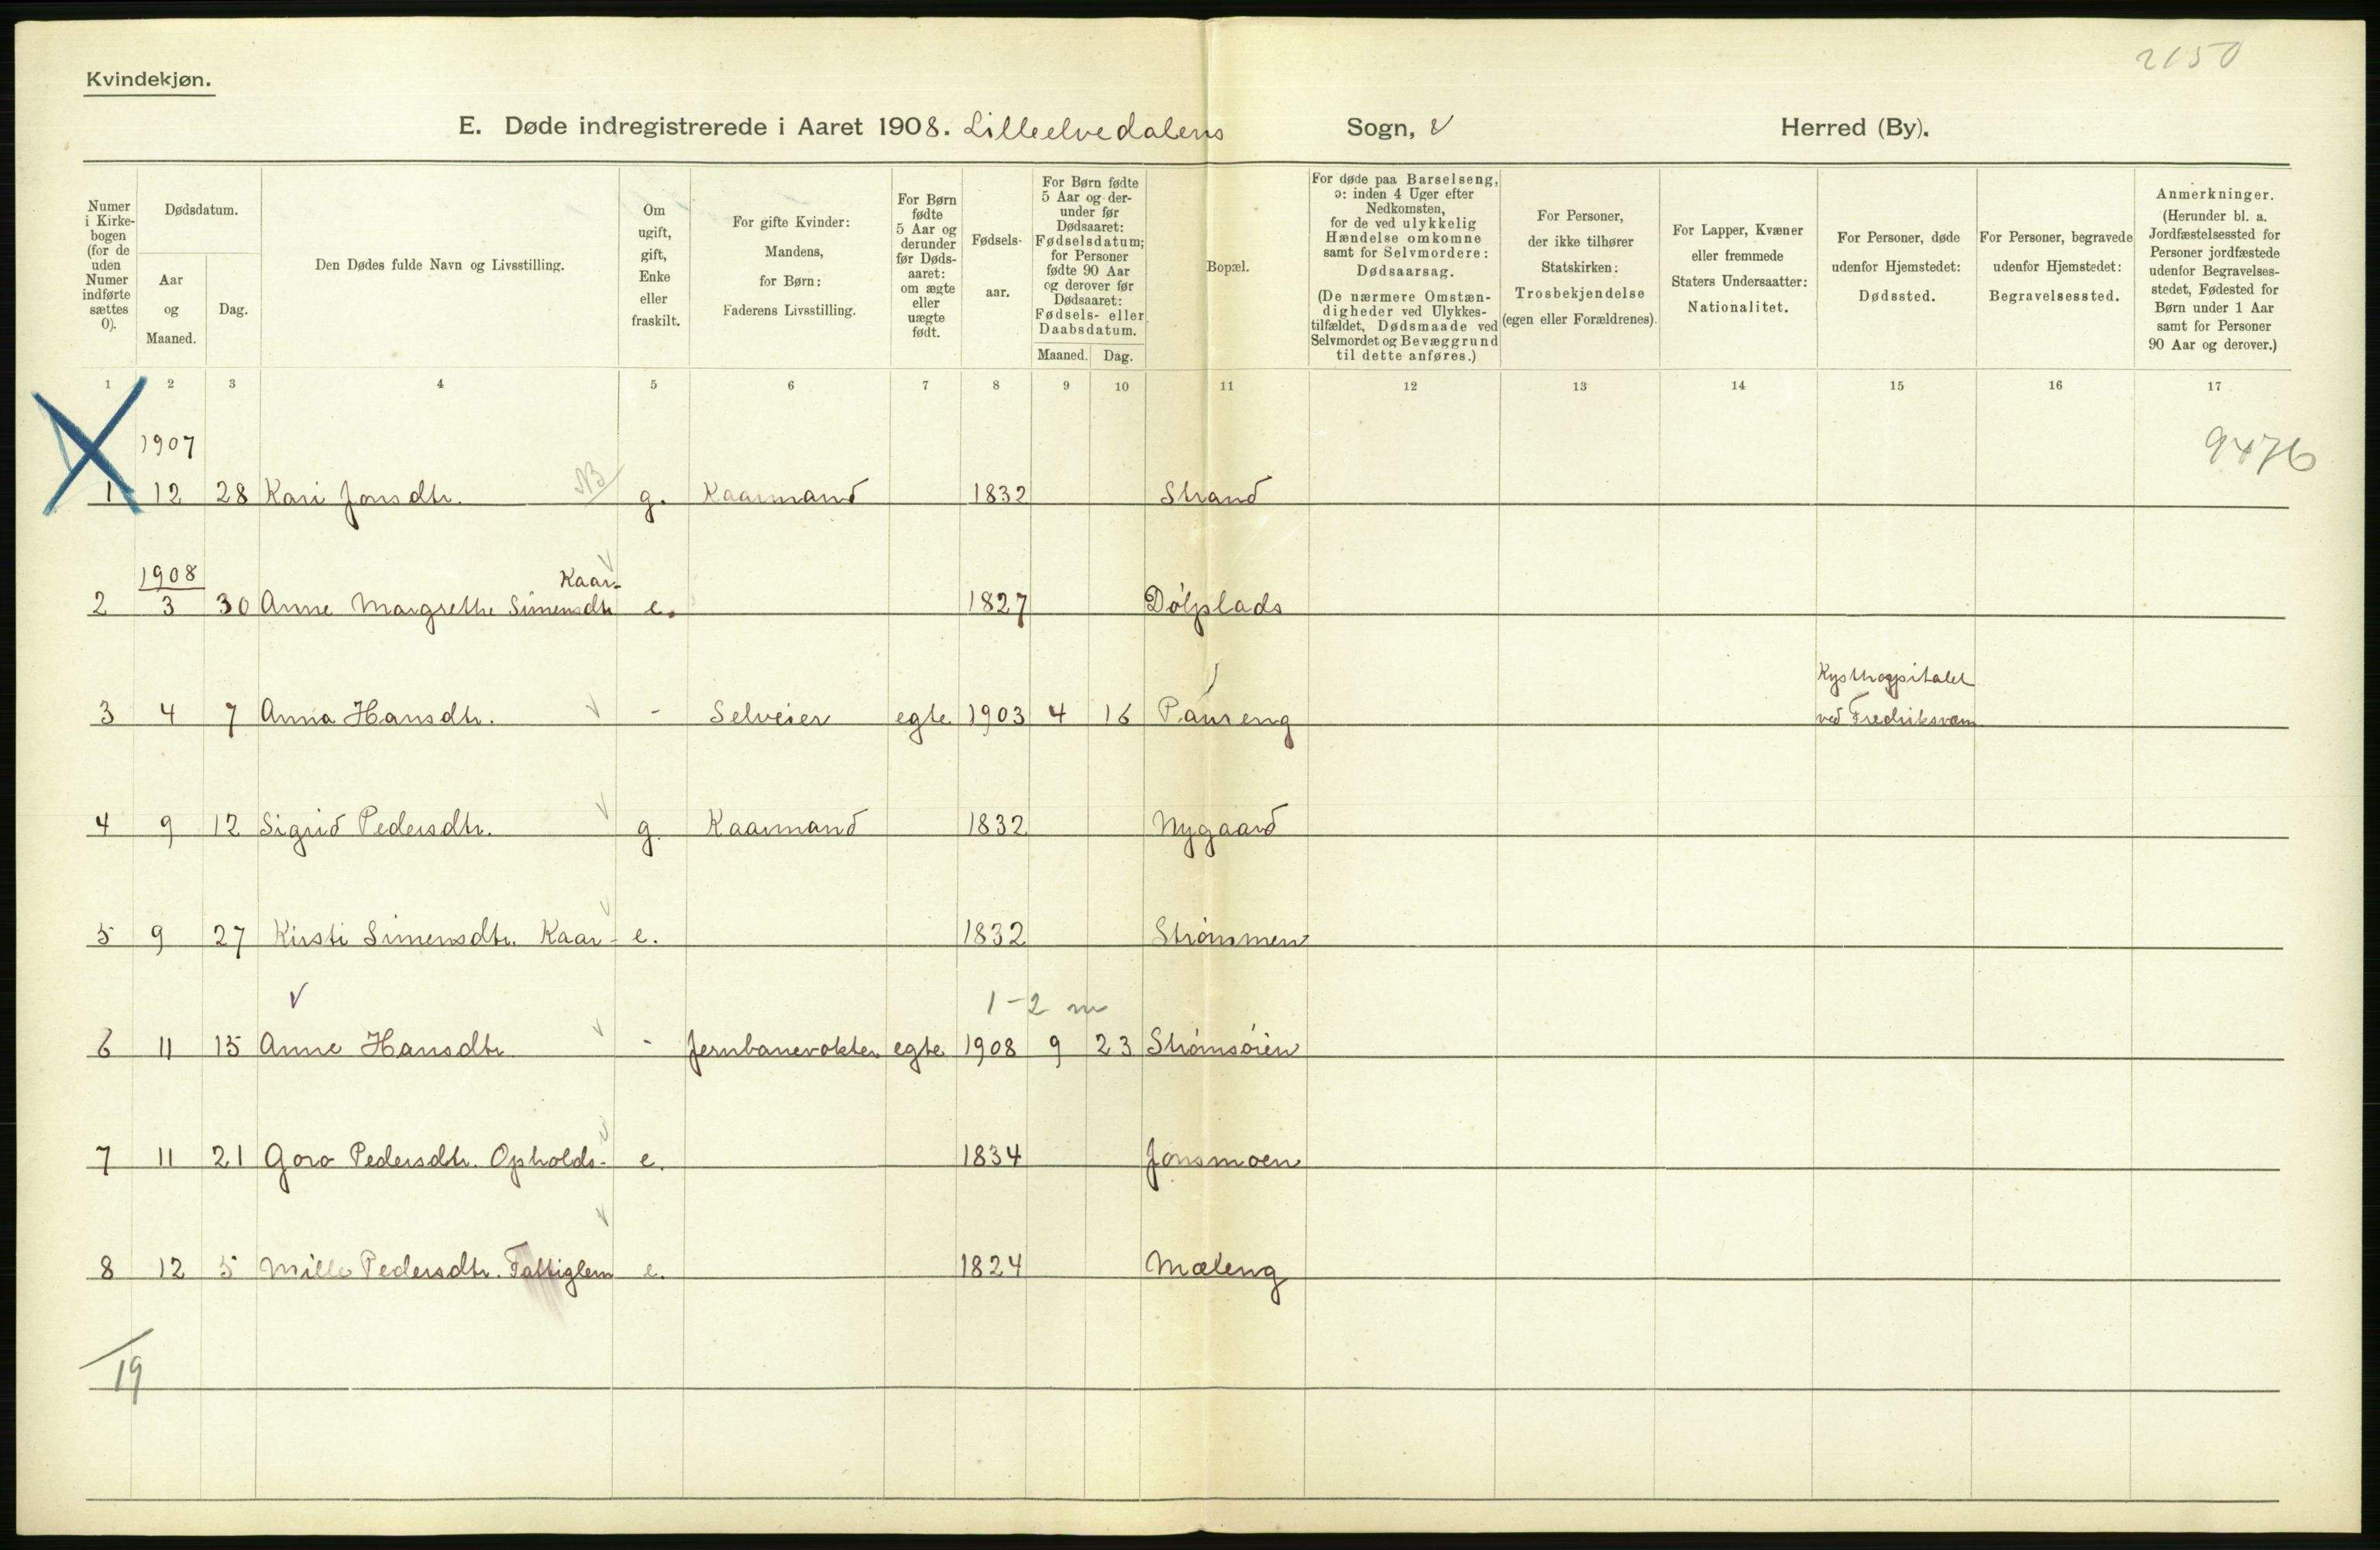 2150
Kvindekjøn.
E. Døde indregistrerede i Aaret 1908. Lilleelvedalens Sogn, Herred (By).
Numer i Kirkebogen (for de uden Numer indførte sættes 0).
Dødsdatum.
Aar og Maaned.
Dag.
Den Dødes fulde Navn og Livsstilling.
Om ugift, gift, Enke eller fraskilt.
For gifte Kvinder: Mandens, for Børn: Faderens Livsstilling.
For Børn fødte 5 Aar og derunder før Dødsaaret: om ægte eller uægte født.
Fødselsaar.
For Børn fødte 5 Aar og derunder før Dødsaaret: Fødselsdatum; for Personer fødte 90 Aar og derover før Dødsaaret: Fødsels- eller Daabsdatum.
Maaned. Dag.
Bopæl.
For døde paa Barselseng, ɔ: inden 4 Uger efter Nedkomsten, for de ved ulykkelig Hændelse omkomne samt for Selvmordere: Dødsaarsag. (De nærmere Omstændigheder ved Ulykkestilfældet, Dødsmaade ved Selvmordet og Bevæggrund til dette anføres.)
For Personer, der ikke tilhører Statskirken: Trosbekjendelse (egen eller Forældrenes).
For Lapper, Kvæner eller fremmede Staters Undersaatter: Nationalitet.
For Personer, døde udenfor Hjemstedet: Dødssted.
For Personer, begravede udenfor Hjemstedet: Begravelsessted.
Anmerkninger. (Herunder bl. a. Jordfæstelsessted for Personer jordfæstede udenfor Begravelsesstedet, Fødested for Børn under 1 Aar samt for Personer 90 Aar og derover.)
1 2 3 4 5 6 7 8 9 10 11 12 13 14 15 16 17
1907
9476
1 12 28 Kari Jonsdtr. NB g. Kaarmand 1832 Strand
1908 Kaar-
2 3 30 Anne Margrethe Simensdtr e. 1827 Dølplads
Kysthospitalet
3 4 7 Anna Hansdtr. - Selveier egte 1903 4 16 ved Fredriksværn
4 9 12 Sigrid Pedersdtr. g. Kaarmand 1832 Nygaard
5 9 27 Kirsti Simensdtr. Kaar- e. 1832 Strømmen
1-2 m
6 11 15 Anne Hansdtr - Jernbanevokter egte 1908 9 23 Strømsøien
7 11 21 Goro Pedersdtr. Opholds- e. 1834 Jonsmoen
8 12 5 Mille Pedersdtr. Fattiglem e. 1824 Mæleng
19